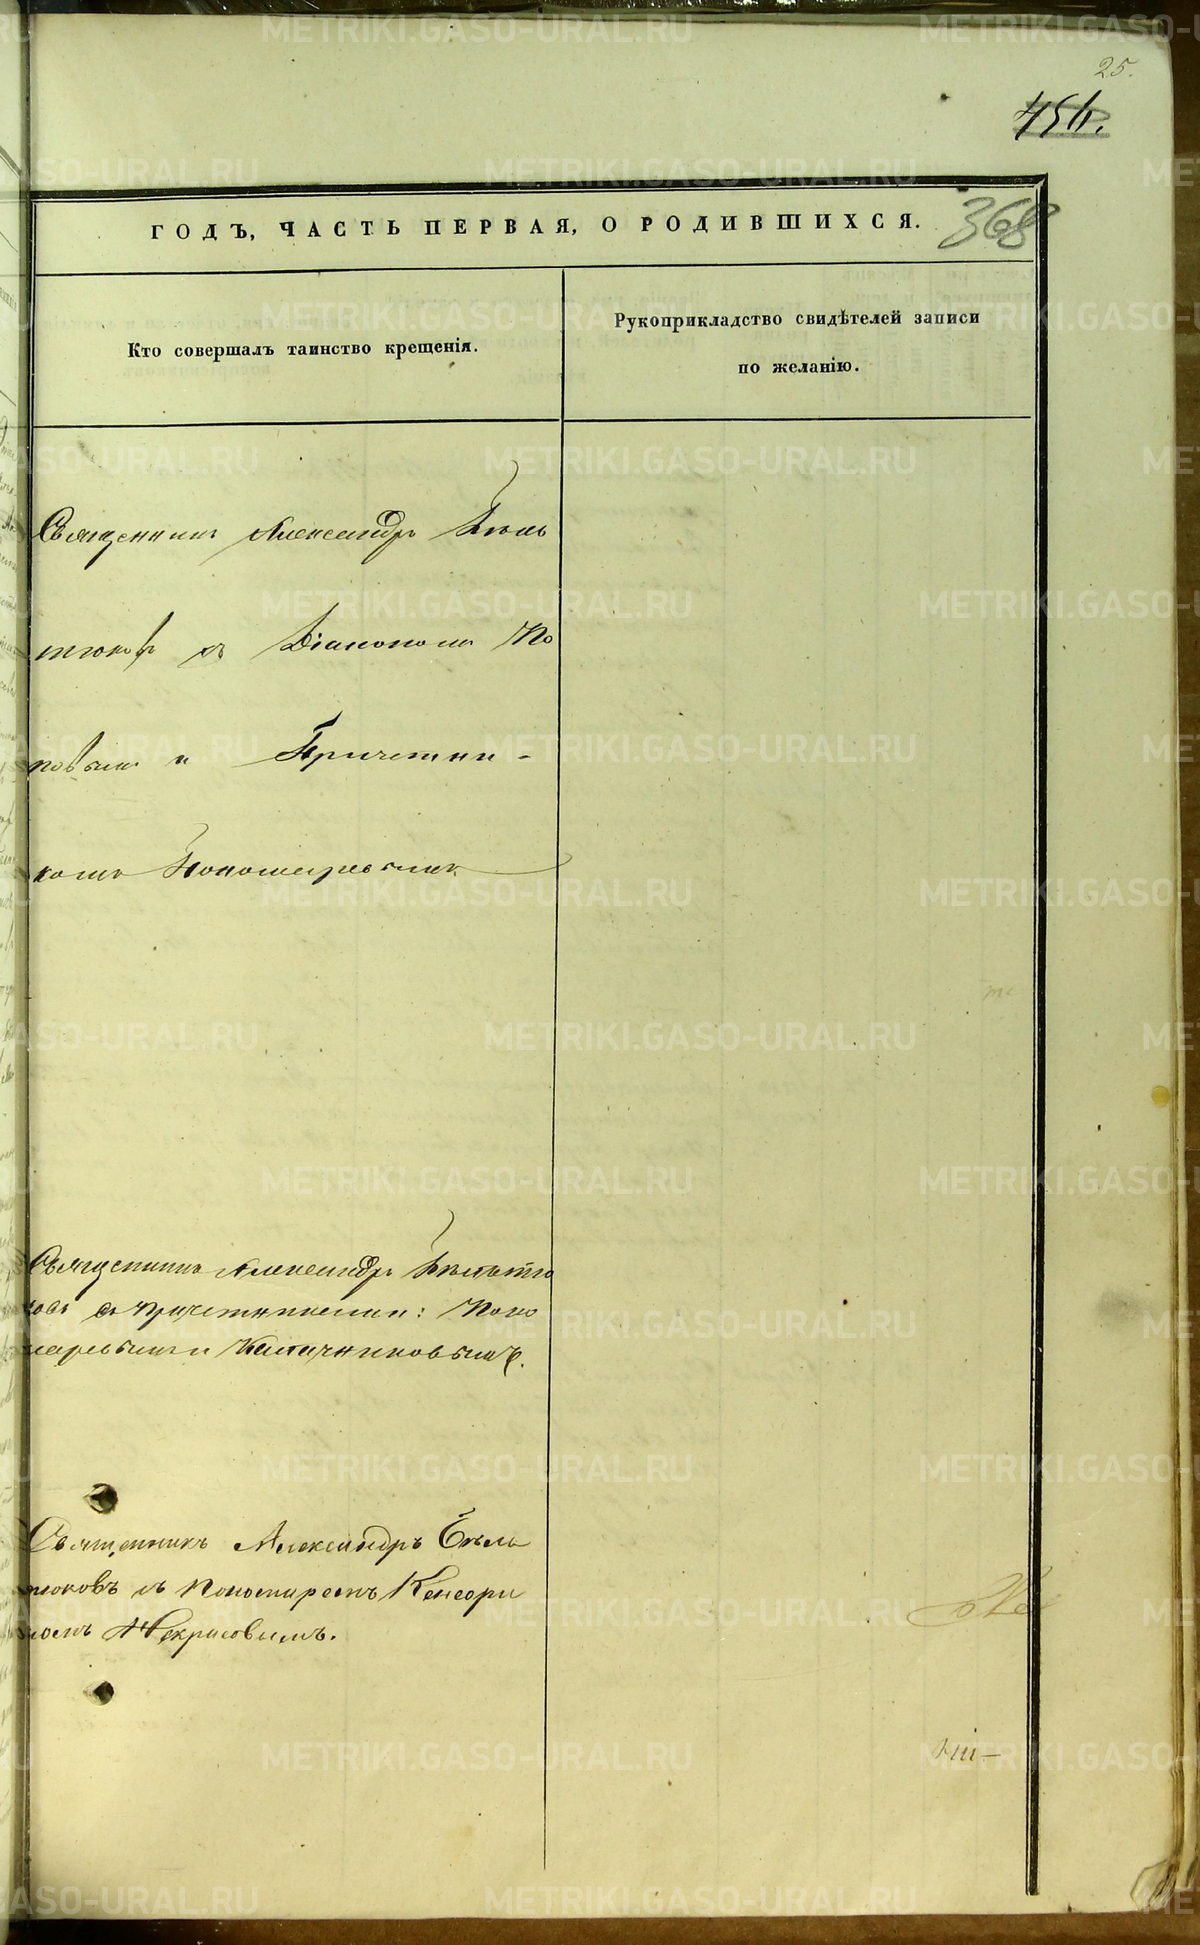 25.
456.
ГОДЪ, ЧАСТЬ ПЕРВАЯ, О РОДИВШИХСЯ.
368
Кто совершалъ таинство крещенія.
Рукоприкладство свидѣтелей записи
по желанію.
Священникъ Александръ Бѣль
тюковъ съ Діакономъ По
повымъ и Причетни-
комъ Пономаревымъ
Священникъ Александръ Бѣльтю
ковъ съ причетниками: Поно
маревымъ и Калачниковымъ.
Священникъ Александръ Бѣль
тюковъ съ Пономаремъ Кенсори
номъ Некрасовымъ.
METRIKI.GASO-URAL.RU